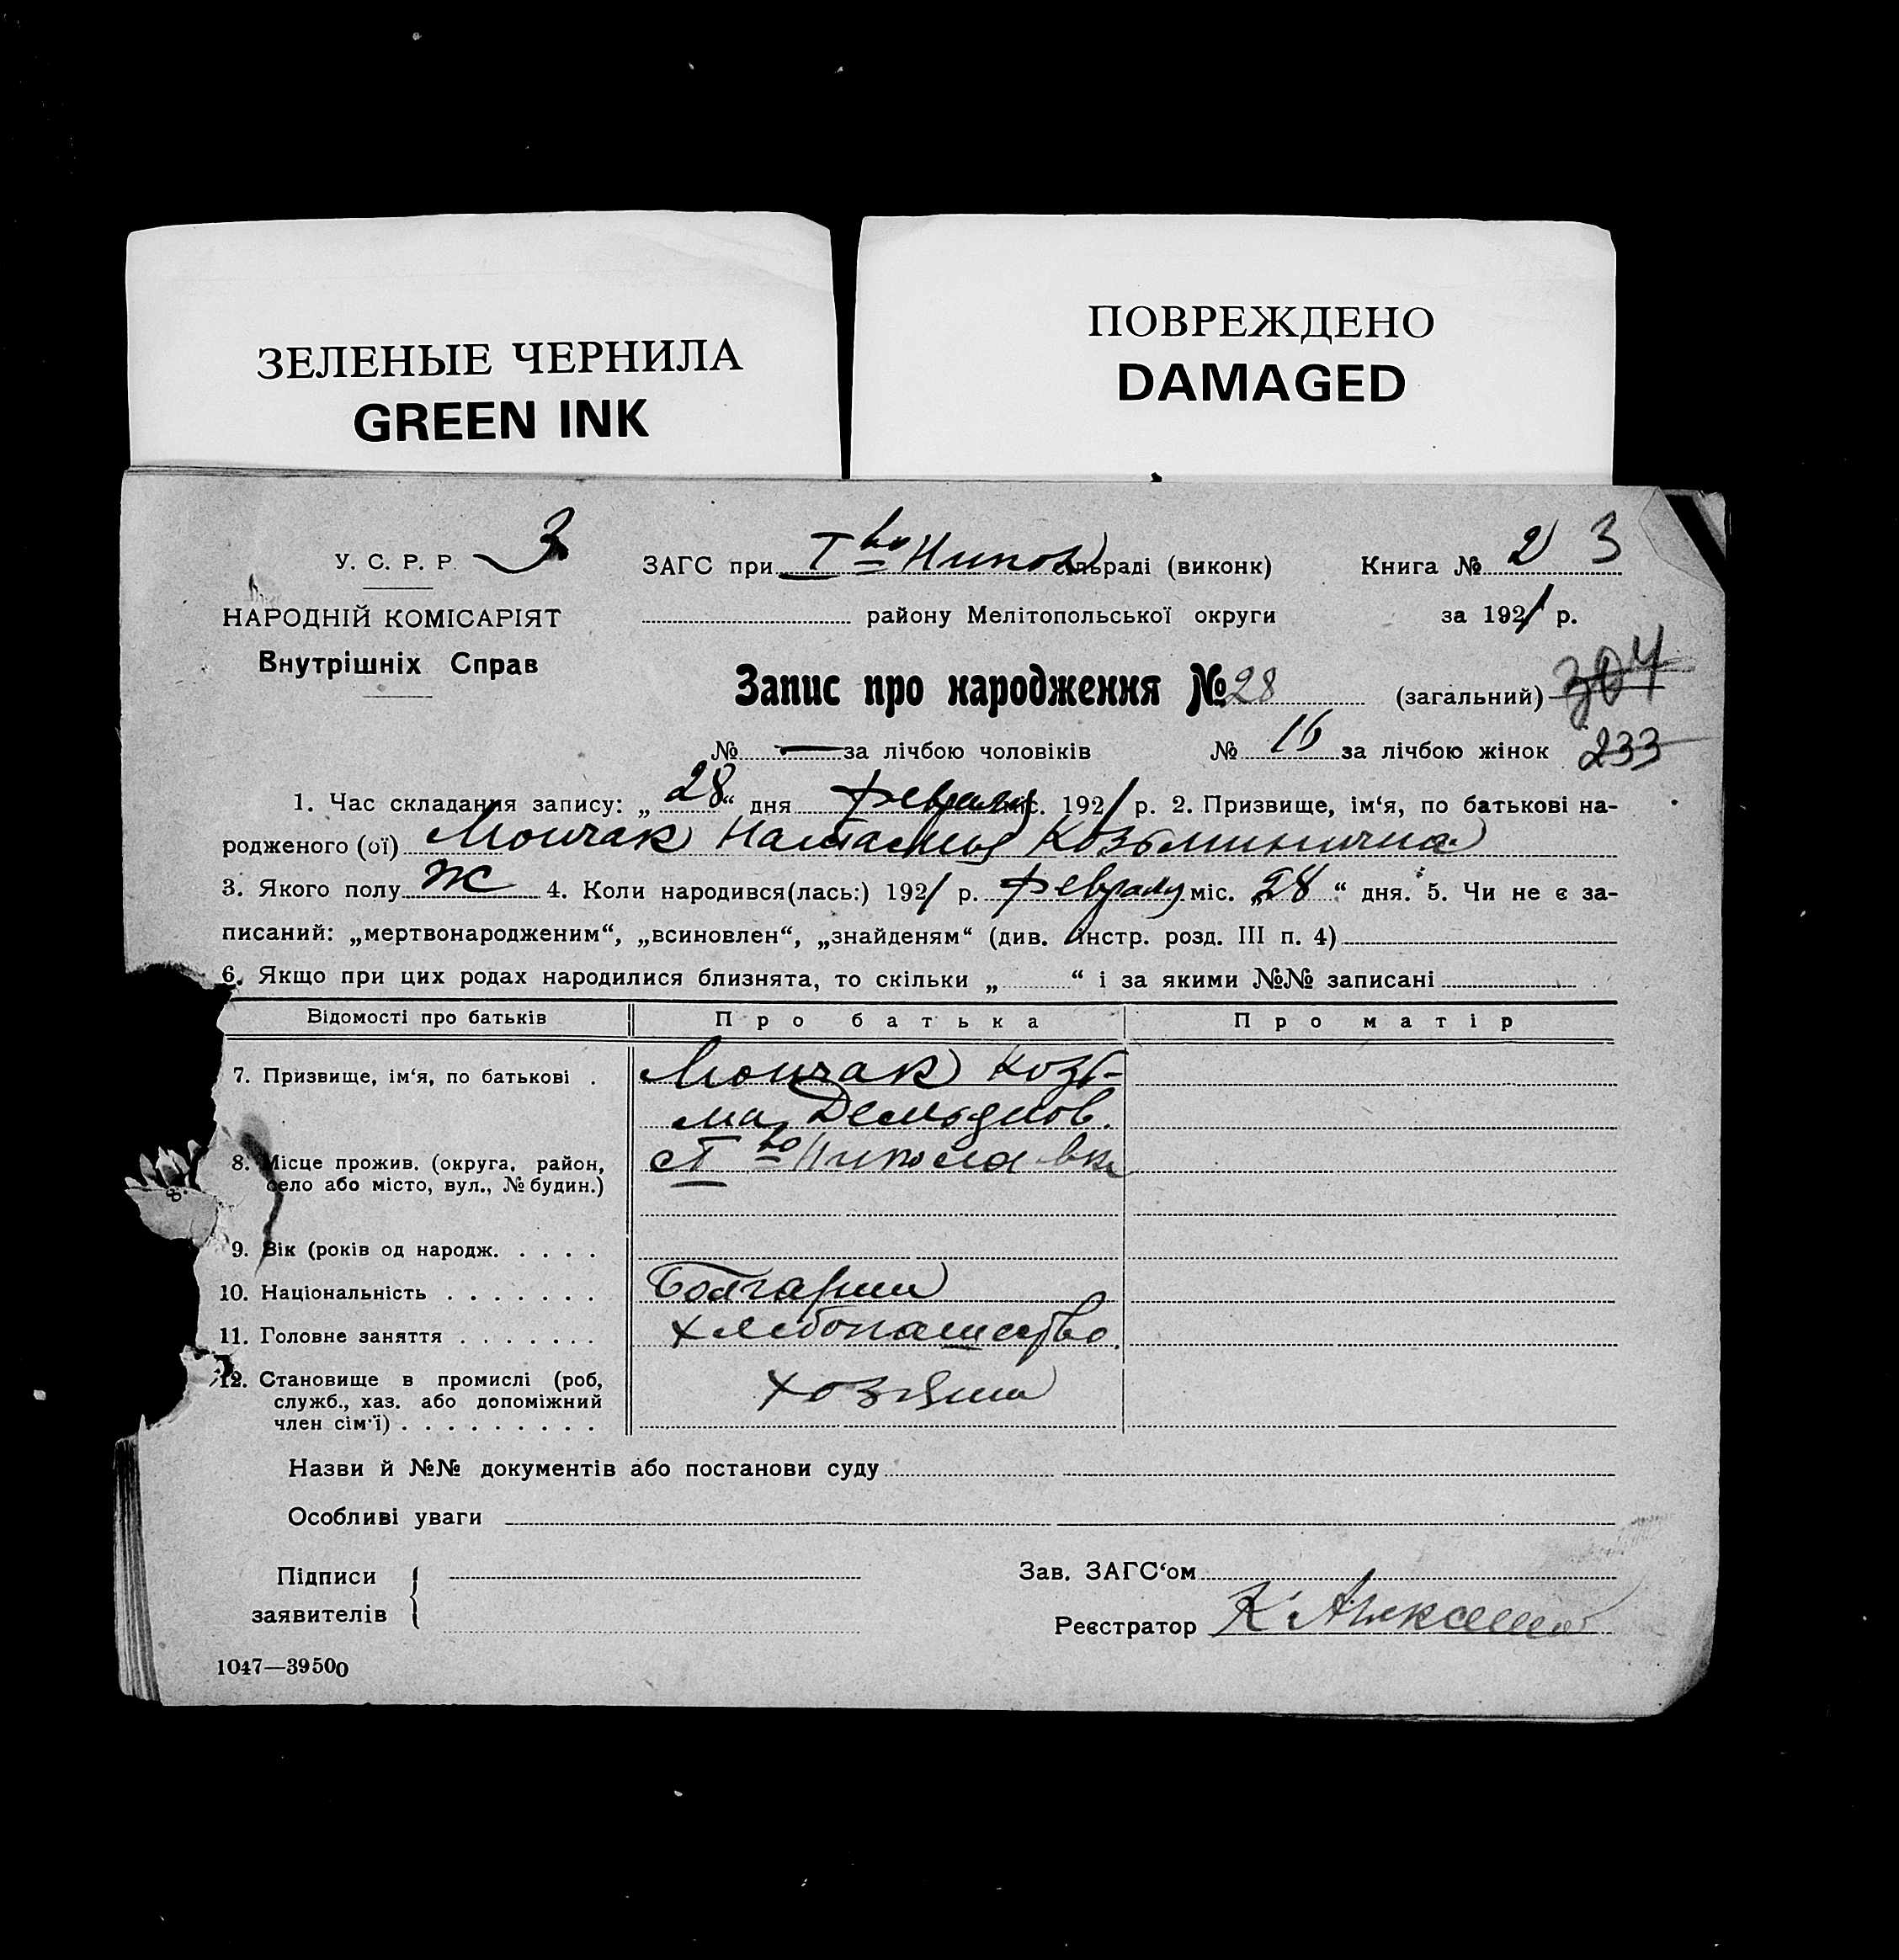 ЗЕЛЕНЫЕ ЧЕРНИЛА
GREEN INK
ПОВРЕЖДЕНО
DAMAGED
У. С. Р. Р. 3
ЗАГС при Тво Никол сільраді (виконк)
Книга № 2 3
НАРОДНІЙ КОМІСАРІЯТ
району Мелітопольської округи
за 1921 р.
Внутрішніх Справ
Запис про народження № 28 (загальний) 304
№ — за лічбою чоловіків № 16 за лічбою жінок 233
1. Час складання запису: „28“ дня февраля міс. 1921 р. 2. Призвище, ім‘я, по батькові на-
родженого (ої) Мончак Настасия Козьминична
3. Якого полу Ж 4. Коли народився(лась:) 1921 р. февраля міс. „28“ дня. 5. Чи не є за-
писаний: „мертвонародженим“, „всиновлен“, „знайденям“ (див. інстр. розд. III п. 4)
6. Якщо при цих родах народилися близнята, то скільки „ “ і за якими №№ записані
Відомості про батьків
Про батька
Про матір
7. Призвище, ім‘я, по батькові .
Мончак Козь-
ма Демьянов.
8. Місце прожив. (округа, район,
село або місто, вул., № будин.)
с Тво Николаевка
9. Вік (років од народж. . . . .
10. Національність . . . . . . .
Болгарин
11. Головне заняття . . . . . . .
хлебопашество
12. Становище в промислі (роб,
служб., хаз. або допоміжний
член сім‘ї) . . . . . . . . .
хозяин
Назви й №№ документів або постанови суду
Особливі уваги
Підписи
заявителів
Зав. ЗАГС‘ом
Реєстратор К
1047—39500